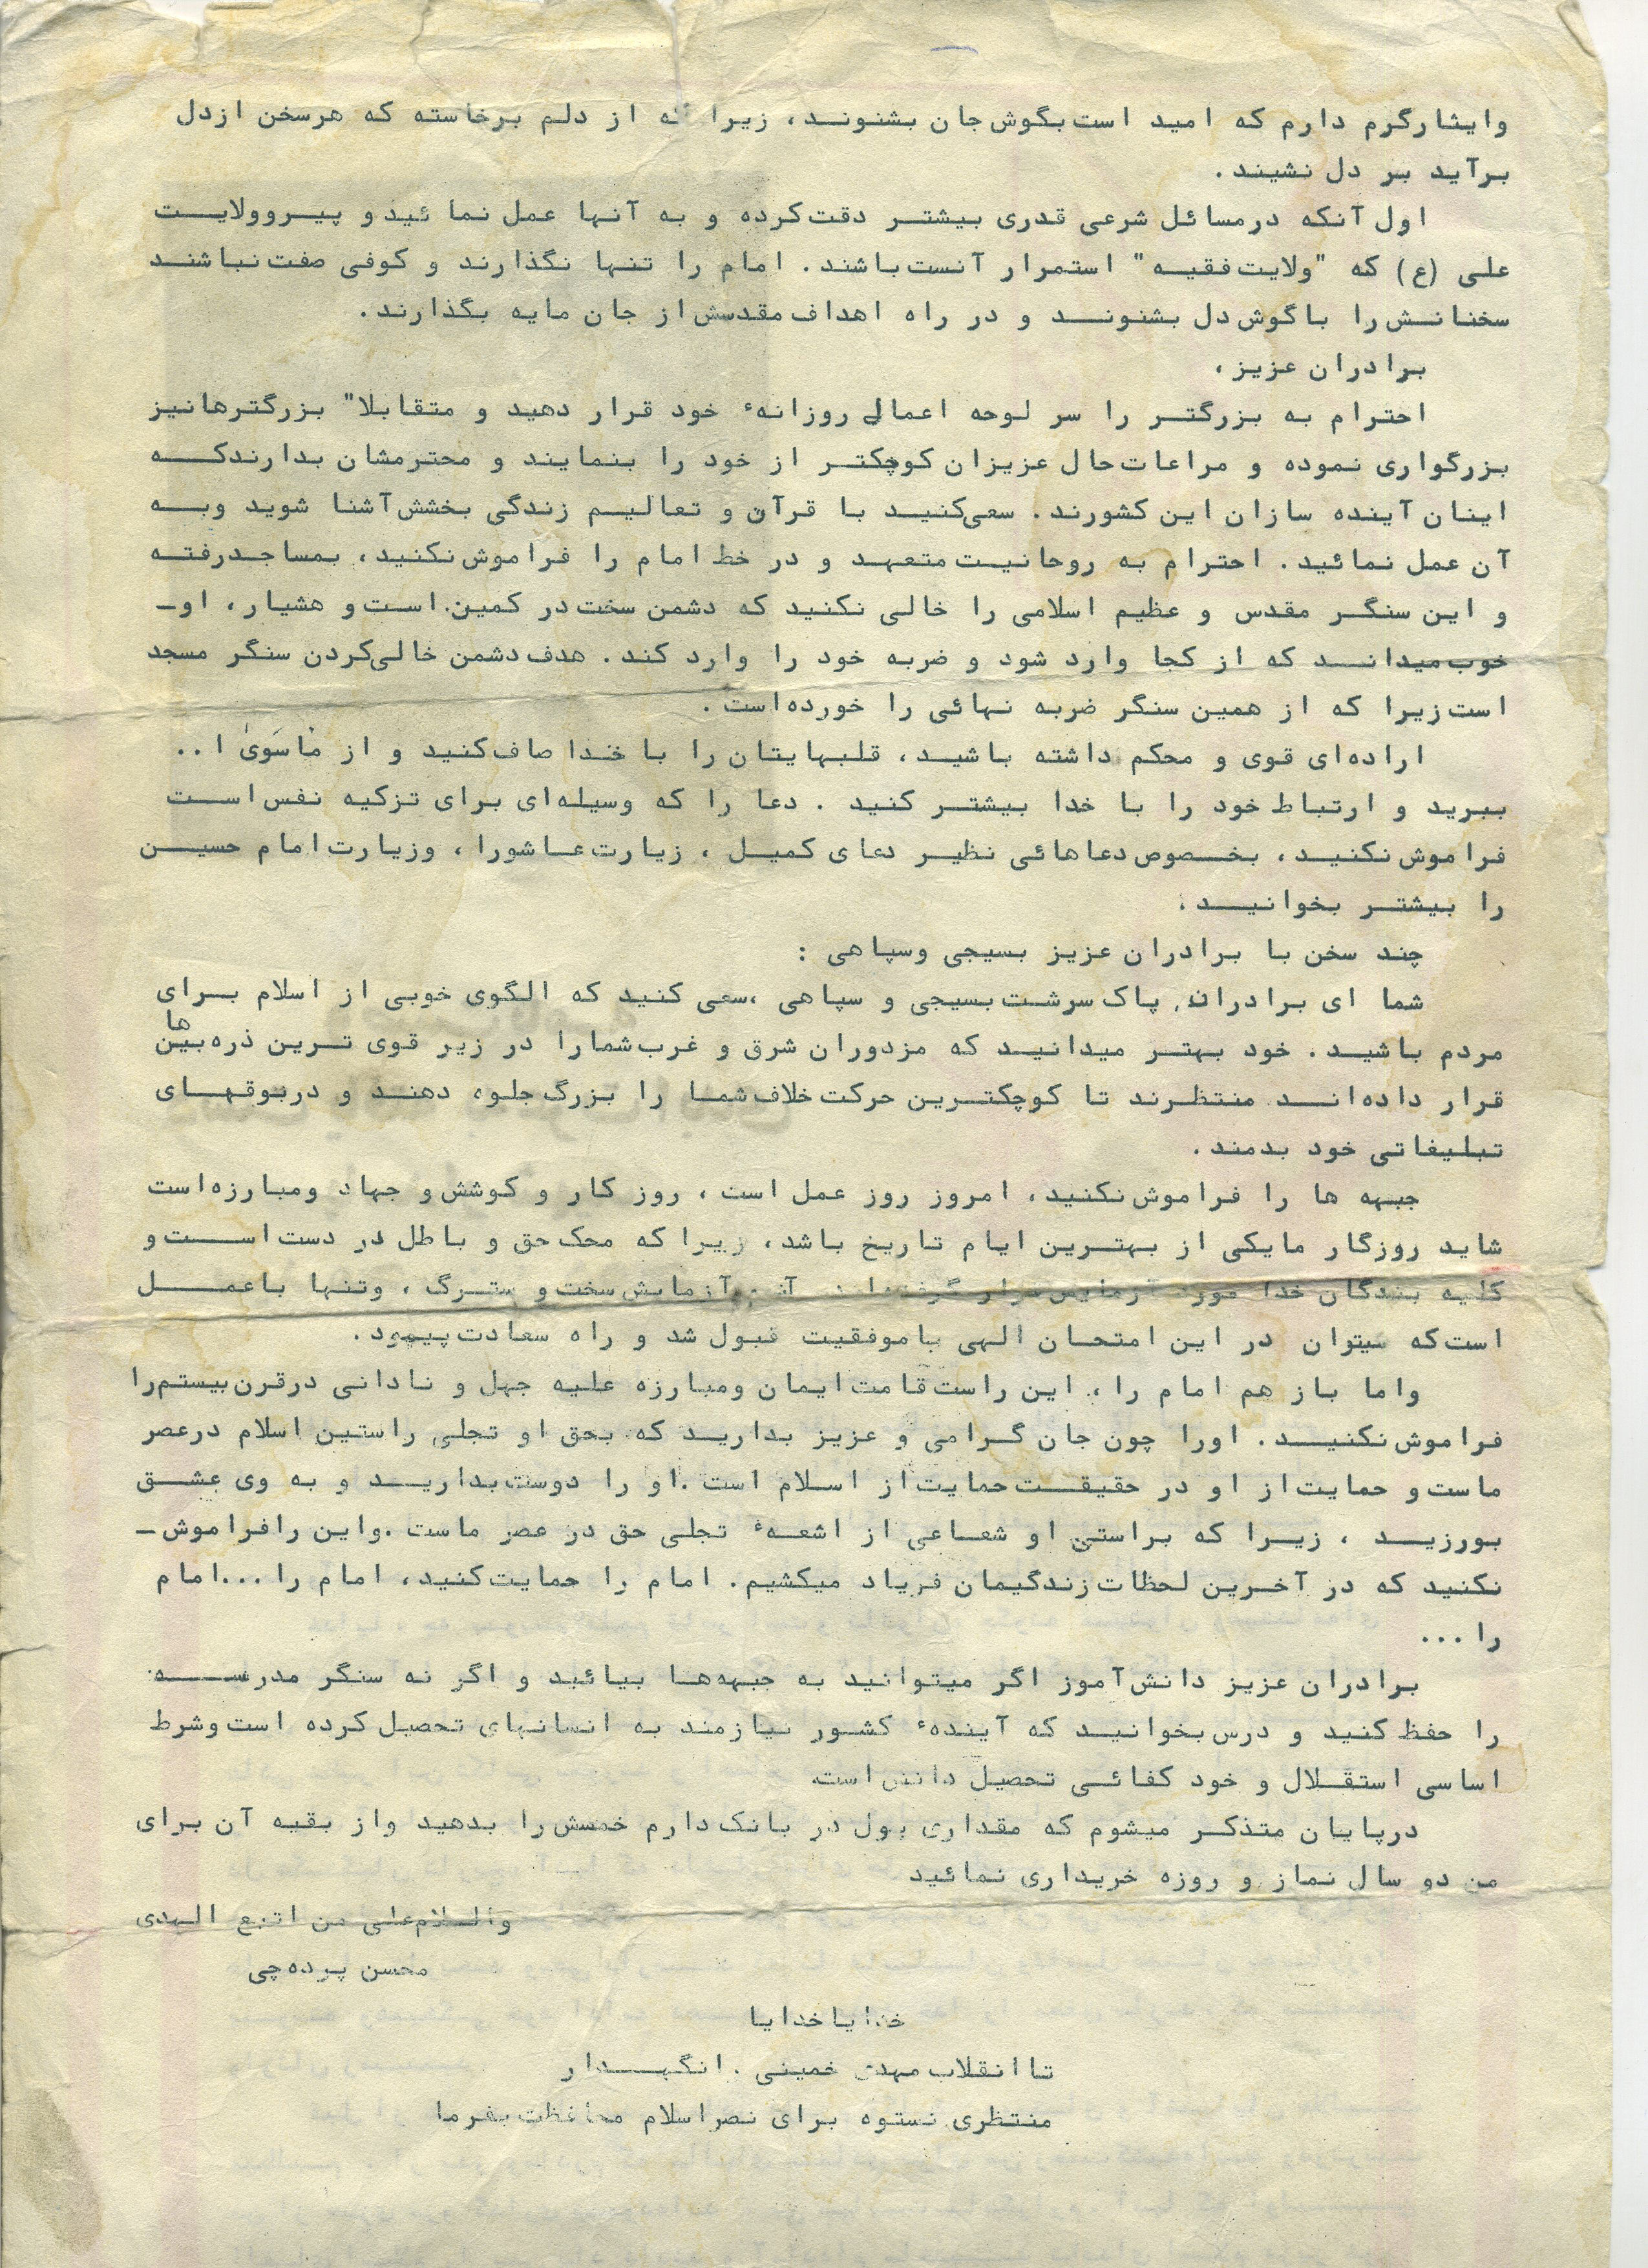 وایثارگرم دارم که امید است بگوش جان بشنوند، زیرا که از دلم برخاسته که هرسخن ازدل
برآید بر دل نشیند.
اول آنکه درمسائل شرعی قدری بیشتر دقت کرده و به آنها عمل نمائید و پیروولایت
علی (ع) که "ولایت فقیه" استمرار آنست باشند. امام را تنها نگذارند و کوفی صفت نباشند
سخنانش را باگوش دل بشنوند و در راه اهداف مقدسش از جان مایه بگذارند.
برادران عزیز،
احترام به بزرگتر را سر لوحه اعمال روزانهٔ خود قرار دهید و متقابلا" بزرگترهانیز
بزرگواری نموده و مراعات حال عزیزان کوچکتر از خود را بنمایند و محترمشان بدارندکه
اینان آینده سازان این کشورند. سعی کنید با قرآن و تعالیم زندگی بخشش آشنا شوید وبه
آن عمل نمائید. احترام به روحانیت متعهد و در خط امام را فراموش نکنید، بمساجدرفته
و این سنگر مقدس و عظیم اسلامی را خالی نکنید که دشمن سخت در کمین است و هشیار، او-
خوب میداند که از کجا وارد شود و ضربه خود را وارد کند. هدف دشمن خالی کردن سنگر مسجد
است زیرا که از همین سنگر ضربه نهائی را خورده است.
اراده‌ای قوی و محکم داشته باشید، قلبهایتان را با خدا صاف کنید و از ماسَویٰ ا..
ببرید و ارتباط خود را با خدا بیشتر کنید . دعا را که وسیله‌ای برای تزکیه نفس است
فراموش نکنید، بخصوص دعاهائی نظیر دعای کمیل ، زیارت عاشورا ، وزیارت امام حسین
را بیشتر بخوانید.
چند سخن با برادران عزیز بسیجی وسپاهی :
شما ای برادران پاک سرشت بسیجی و سپاهی ،سعی کنید که الگوی خوبی از اسلام برای
مردم باشید. خود بهتر میدانید که مزدوران شرق و غرب شمارا در زیر قوی ترین ذره بین ها
قرار داده‌اند منتظرند تا کوچکترین حرکت خلاف شما را بزرگ جلوه دهند و دربوقهای
تبلیغاتی خود بدمند.
جبهه ها را فراموش نکنید، امروز روز عمل است، روز کار و کوشش و جهاد ومبارزه است
شاید روزگار مایکی از بهترین ایام تاریخ باشد، زیرا که محک حق و باطل در دست است و
کلیه بندگان خدا مورد آزمایش قرار آزمایش سخت و سترگ ، وتنها باعمل
است که میتوان در این امتحان الهی باموفقیت قبول شد و راه سعادت پیمود.
واما باز هم امام را ، این راست قامت ایمان ومبارزه علیه جهل و نادانی درقرن بیستم را
فراموش نکنید. اورا چون جان گرامی و عزیز بدارید که بحق او تجلی راستین اسلام درعصر
ماست و حمایت از او در حقیقت حمایت از اسلام است .او را دوست بدارید و به وی عشق
بورزید ، زیرا که براستی او شعاعی از اشعهٔ تجلی حق در عصر ماست .واین رافراموش-
نکنید که در آخرین لحظات زندگیمان فریاد میکشیم. امام را حمایت کنید، امام را ...امام
را ...
برادران عزیز دانش آموز اگر میتوانید به جبهه‌ها بیائید و اگر نه سنگر مدرسه
را حفظ کنید و درس بخوانید که آیندهٔ کشور نیازمند به انسانهای تحصیل کرده است وشرط
اساسی استقلال و خود کفائی تحصیل دانش است
درپایان متذکر میشوم که مقداری پول در بانک دارم خمسش را بدهید واز بقیه آن برای
من دو سال نماز و روزه خریداری نمائید
والسلام علی من اتبع الهدی
محسن پرده‌چی
خدایا خدایا
تا انقلاب مهدی خمینی را نگهدار
منتظری نستوه برای نصر اسلام محافظت بفرما